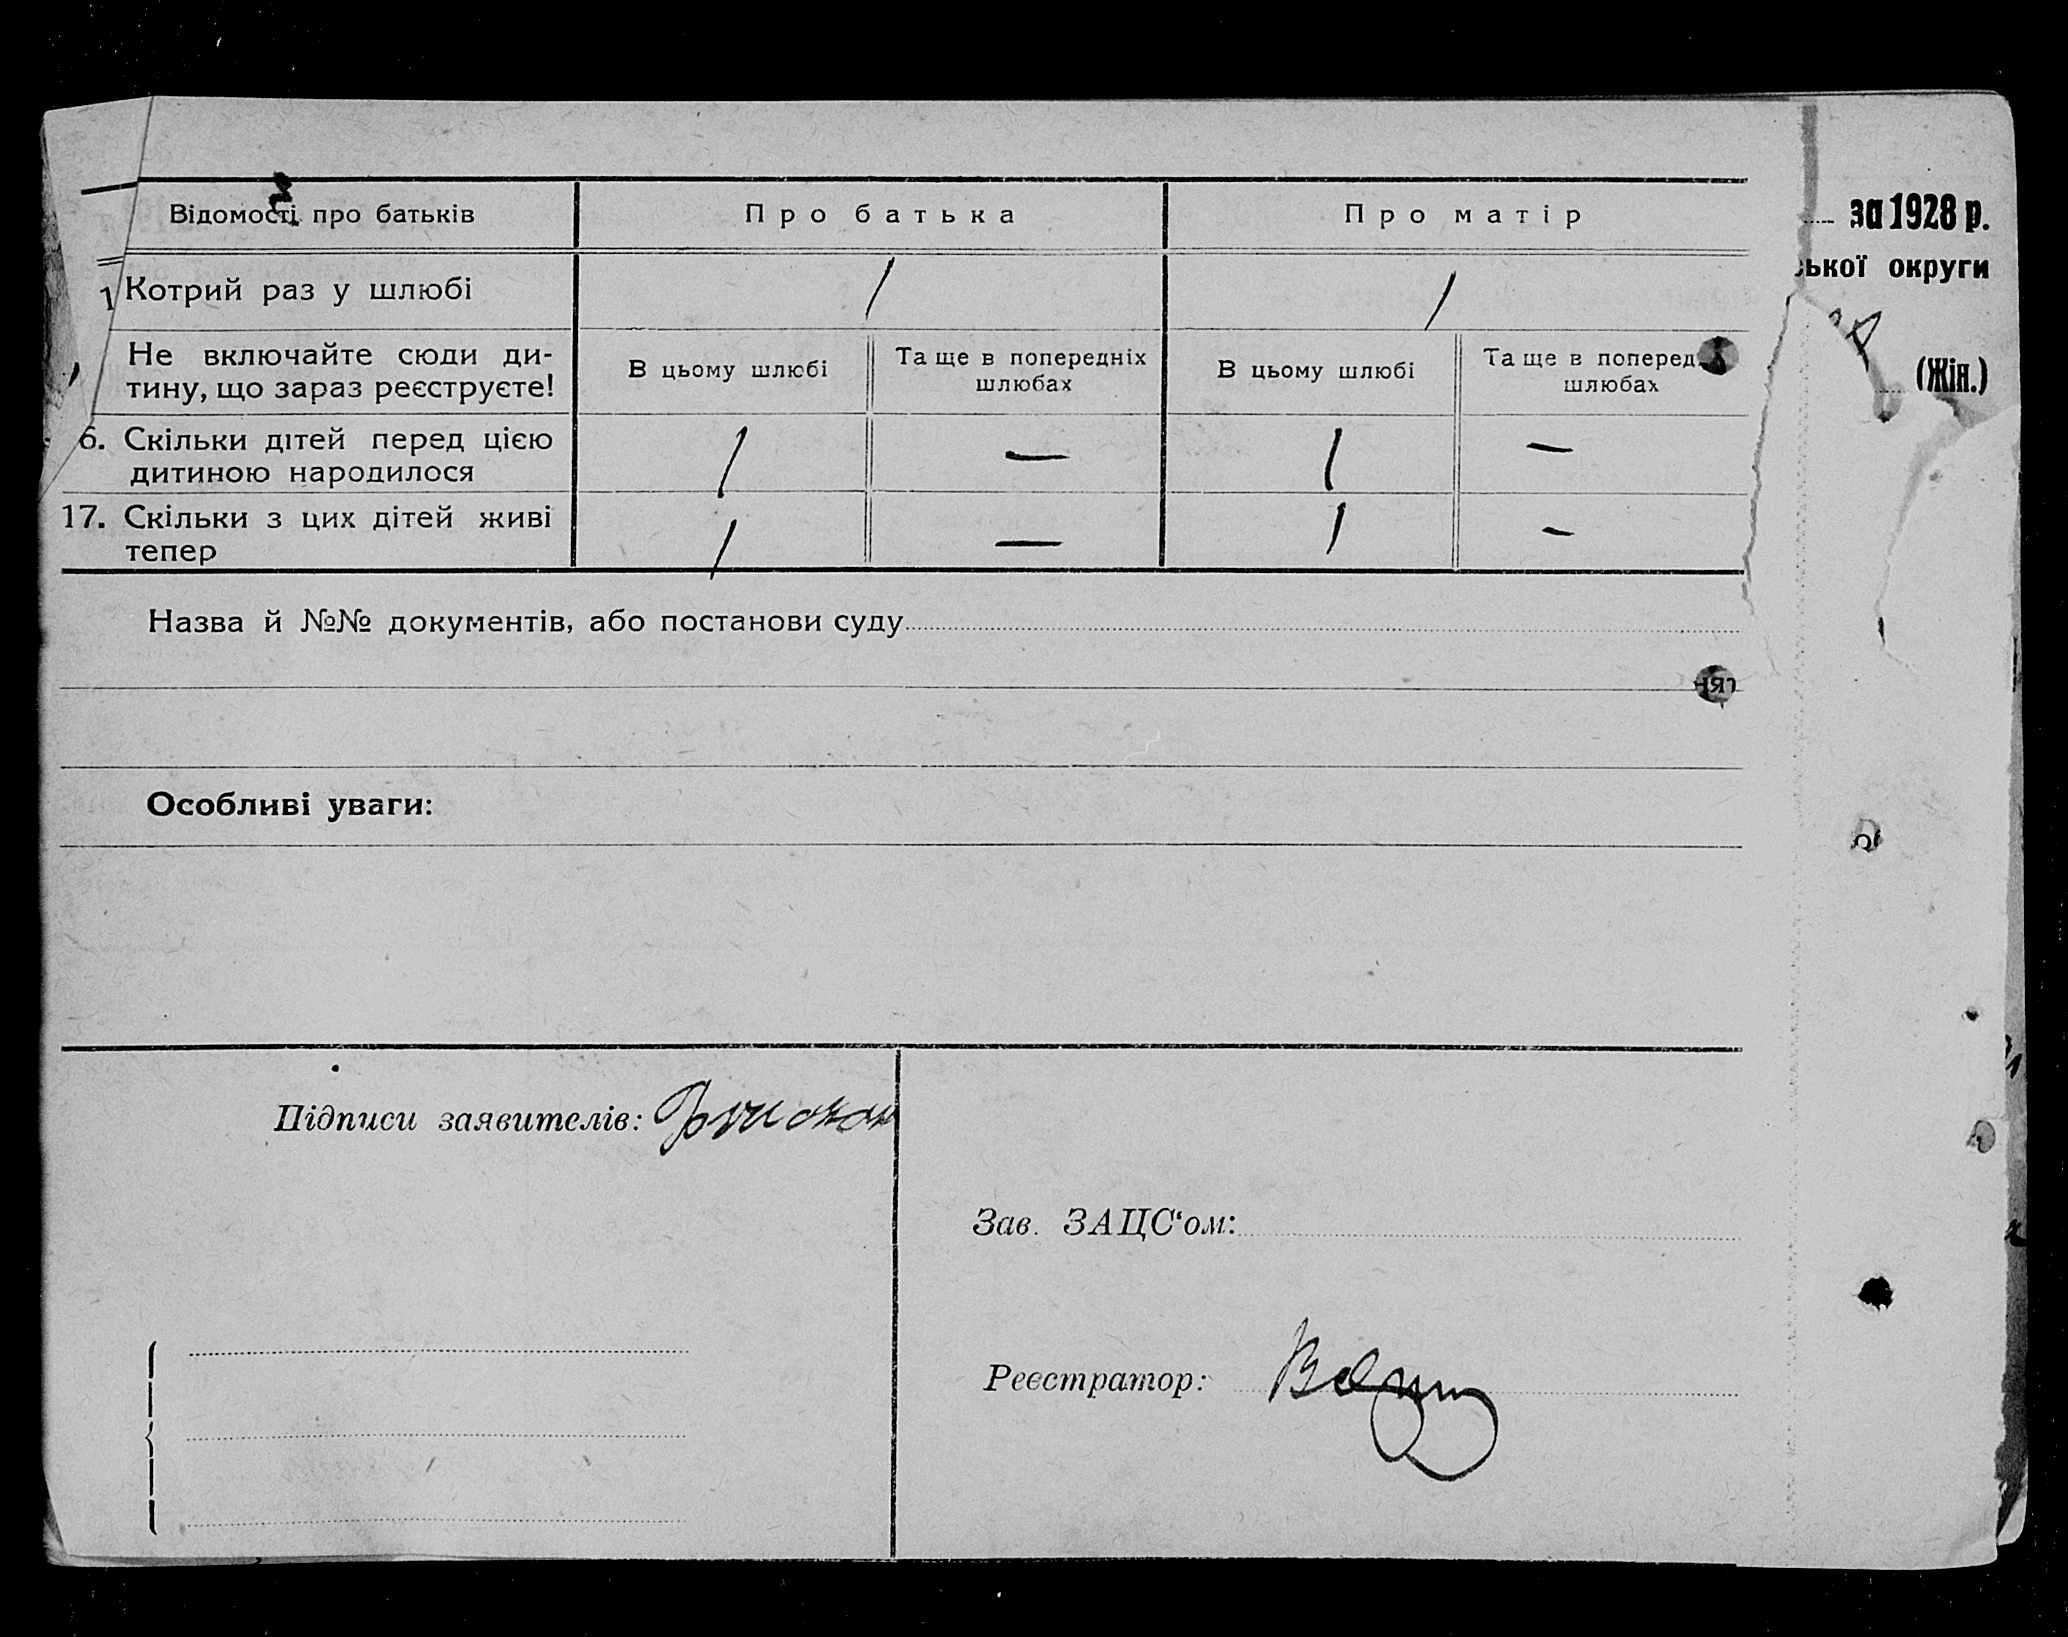 Відомості про батьків Про батька Про матір
за 1928 р.
ської округи
(Жін.)
1 Котрий раз у шлюбі 1 1
Не включайте сюди ди-
тину, що зараз реєструєте!
В цьому шлюбі Та ще в попередніх
шлюбах
В цьому шлюбі Та ще в поперед
шлюбах
6. Скільки дітей перед цією
дитиною народилося 1 — 1 —
17. Скільки з цих дітей живі
тепер 1 — 1 —
Назва й №№ документів, або постанови суду
Особливі уваги:
Підписи заявителів:
Зав. ЗАЦС‘ом:
Реєстратор: